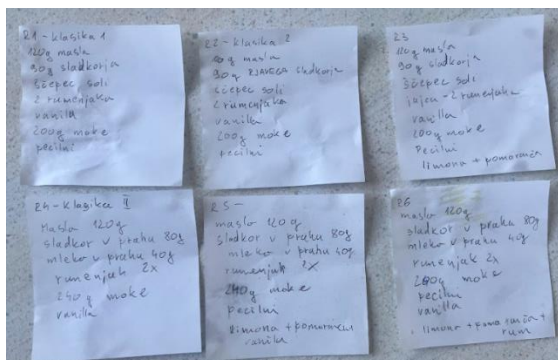 21 - klasika 1
120g masla
90g sladkorja
ščepec soli
2 rumenjaka
vanila
200g moke
pecilni
22 - klasika 2
masla
90g RJAVEGA sladkorja
ščepec soli
2 rumenjaka
vanilla
200g moke
pecilni
23
120g masla
90g sladkorja
ščepec soli
2 rumenjaka
vanilla
200g moke
Pecilni
limona + pomaranča
24 - klasika II
Masla 120g
sladkor v prahu 80g
mleko v prahu 40g
rumenjak 2x
240g moke
vanilla
25 -
maslo 120g
sladkor v prahu 80g
mleko v prahu 40g
rumenjak 2x
240g moke
pecilni
limona + pomaranča
vanila
26
maslo 120g
sladkor v prahu 80g
mleko v prahu 40g
rumenjak 2x
moke
pecilni
vanilla
limona + pomaranča +
rum